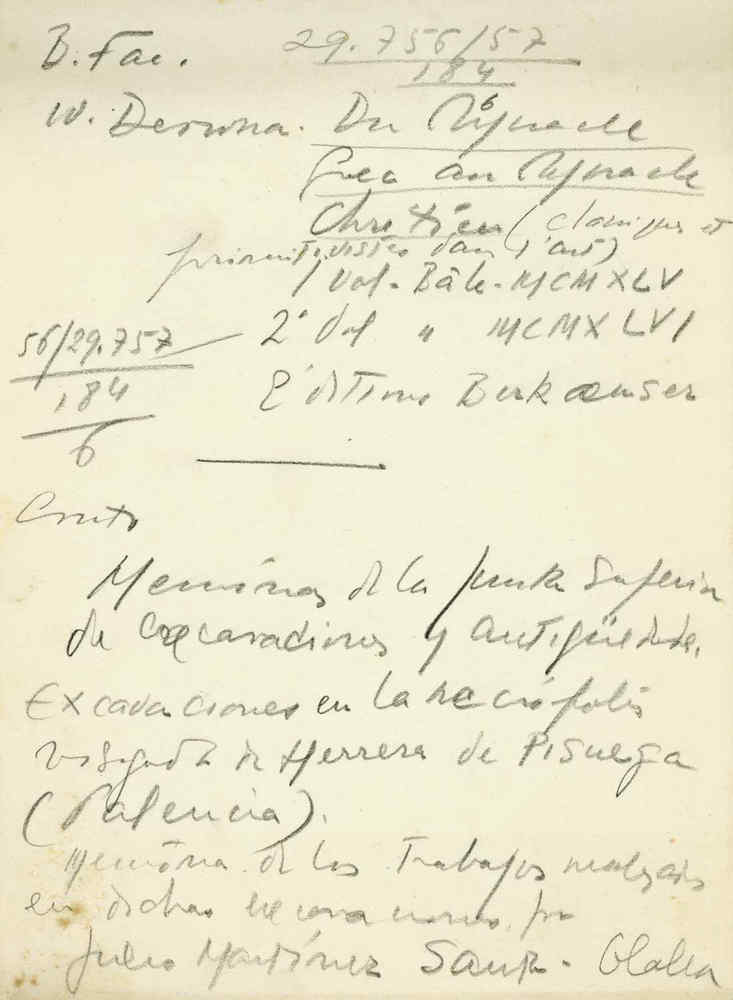 B. Fac. 29.756/57
184
6
W. Deonna. Du Miracle
Grec au Miracle
Chrétien (classiques et
primitivistes dans l'art)
1 Vol. Bâle. MCMXLV
56/29.757 2º Vol " MCMXLVI
184
6
Editions Birkaeuser
Memorias de la Junta Superior
de Excavaciones y Antigüedades.
Excavaciones en la necrópolis
visigoda de Herrera de Pisuerga
(Palencia).
Memoria de los Trabajos realizados
en dichas excavaciones por
Julio Martínez Santa-Olalla